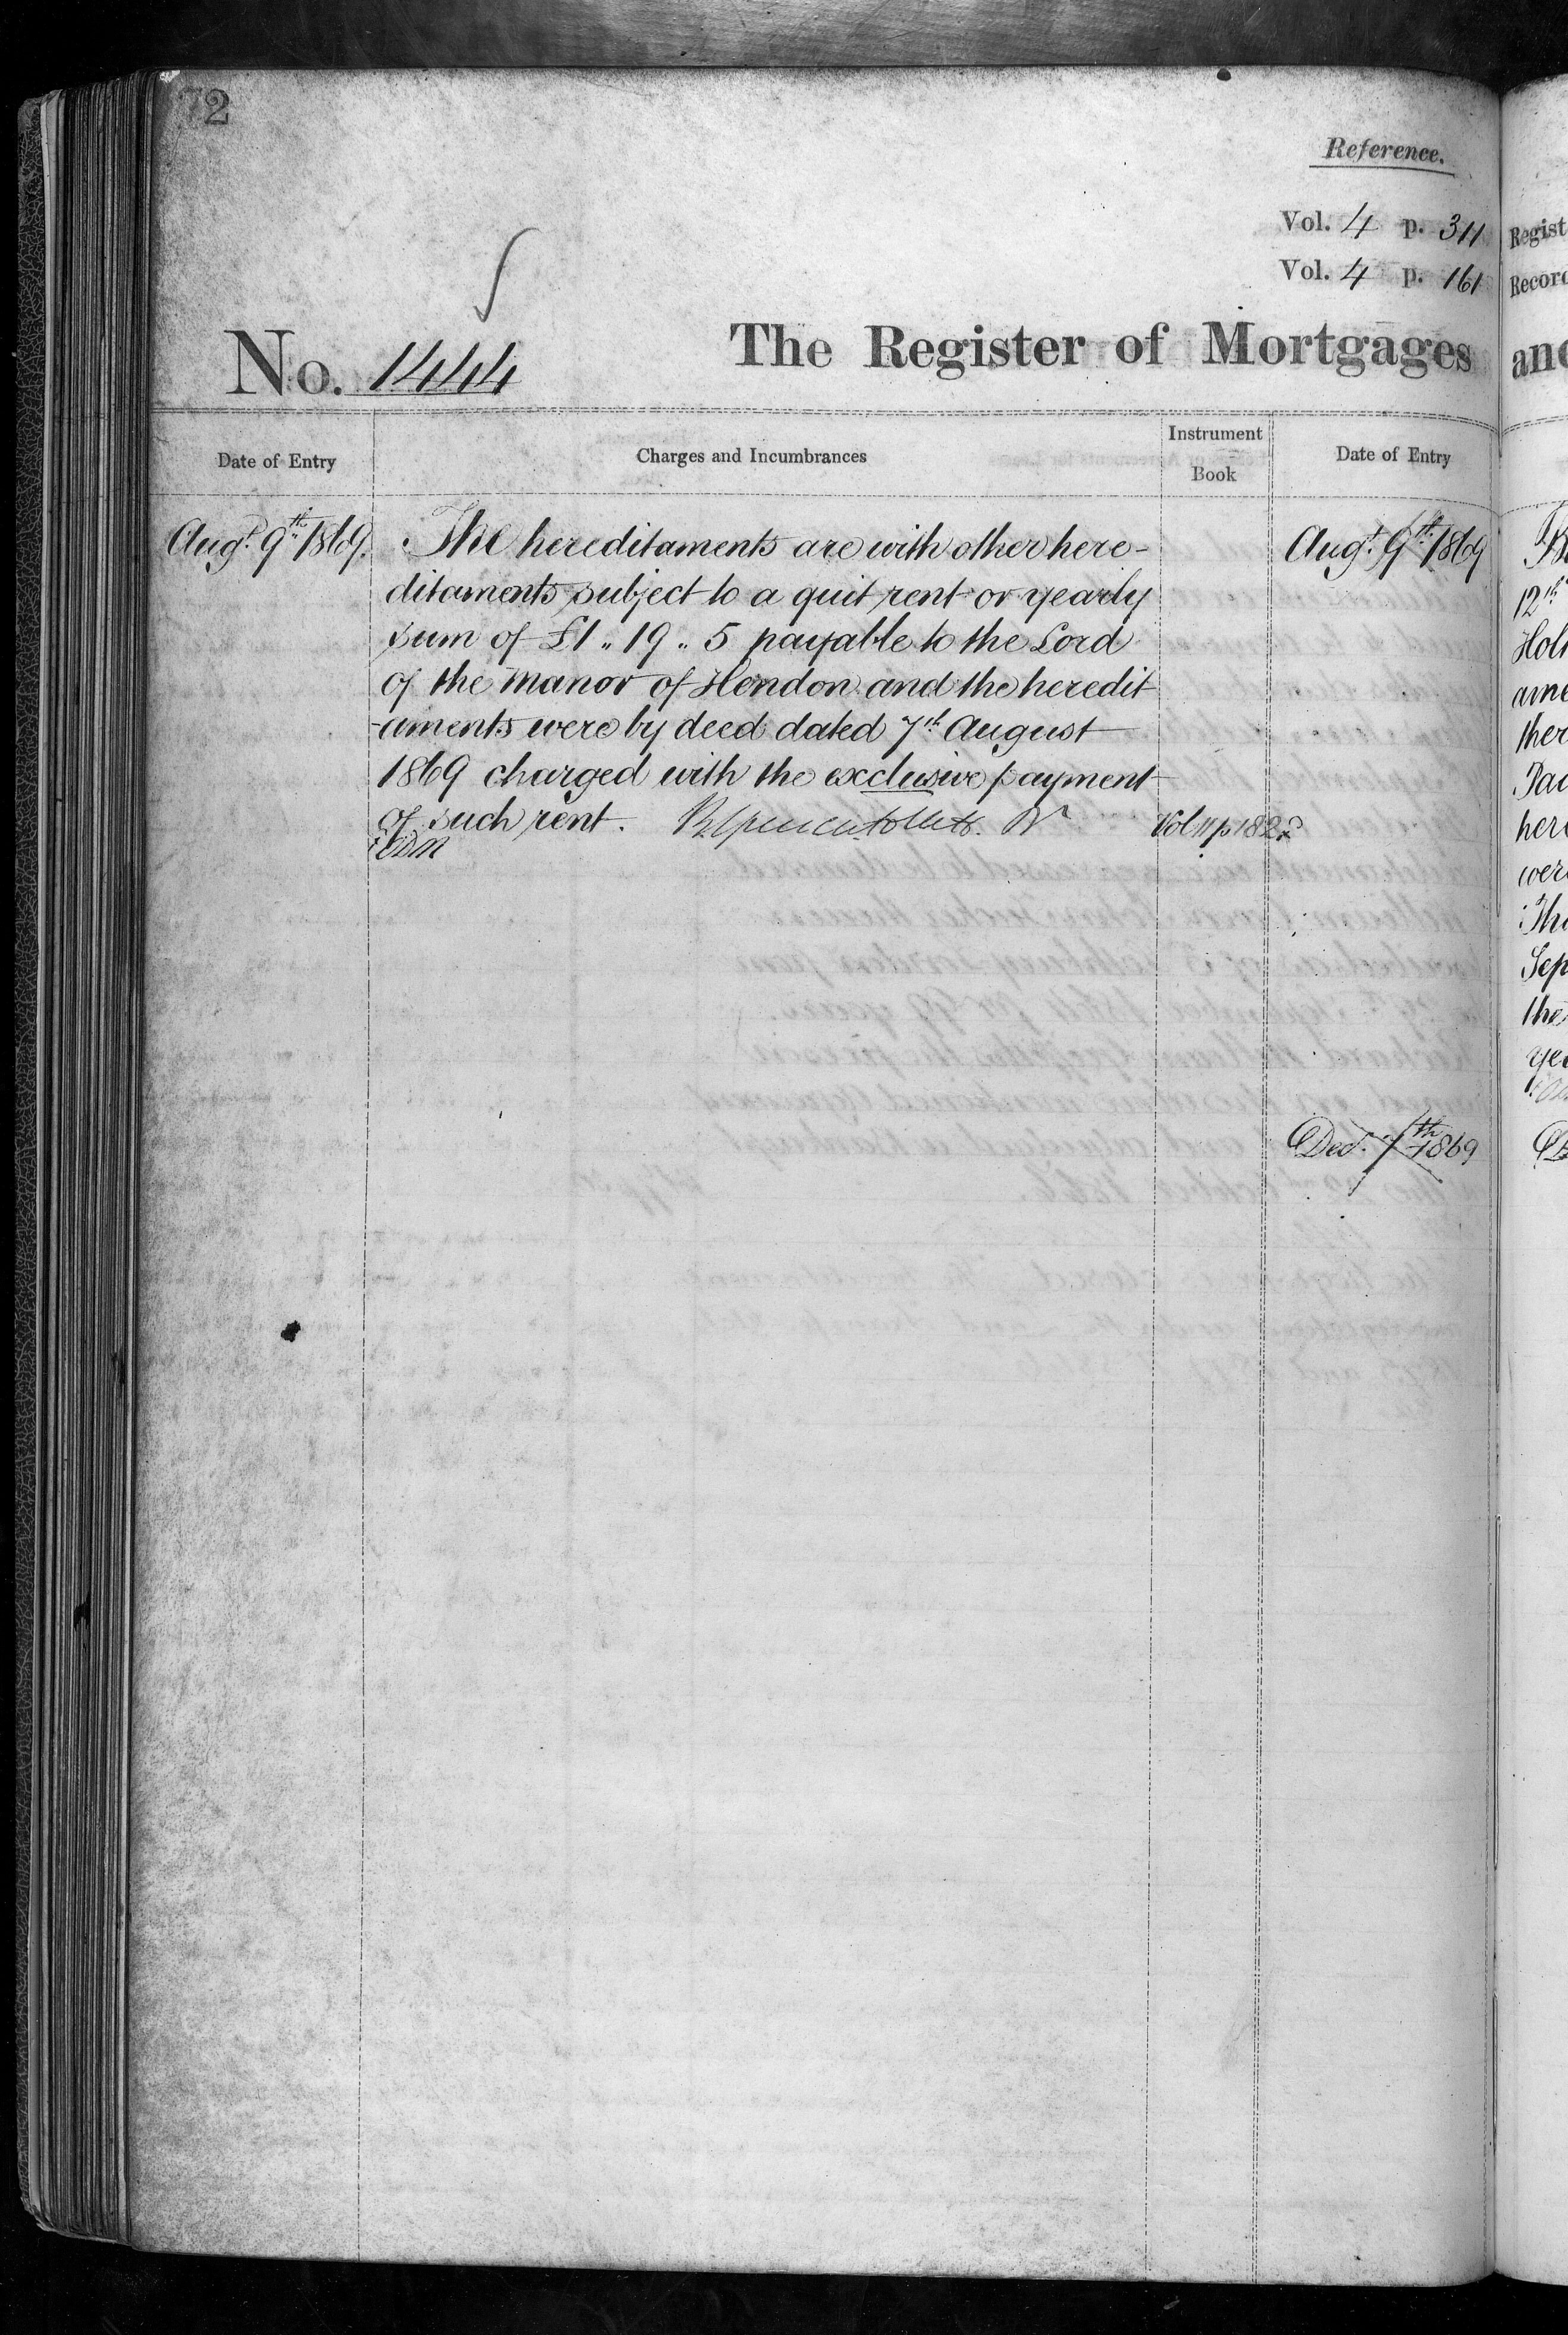 72
Reference.
Vol. 4 p. 311
Vol. 4 p. 161
No. 1444
The Register of Mortgages
Date of Entry
Charges and Incumbrances
Instrument Book
Date of Entry
Augt. 9th 1869.
The hereditaments are with other here-
ditaments subject to a quit rent or yearly
sum of £1 " 19 " 5 payable to the Lord
of the Manor of Hendon and the heredit
-aments were by deed dated 7th August
1869 charged with the exclusive payment
of such rent.
Vol 11 p 182
Augt. 9th 1869
Decr. 7th 1869
Regist
Record
and
12th
Holl
ame
ther
Jac
here
were
Tho
Sep
the
yea